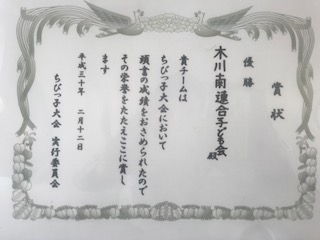 賞状
優勝
木川南連合子ども会 殿
貴チームは
ちびっ子大会において
頭書の成績をおさめられたので
その栄誉をたたえここに賞し
ます
平成三十年 二月十二日
ちびっ子大会 実行委員会